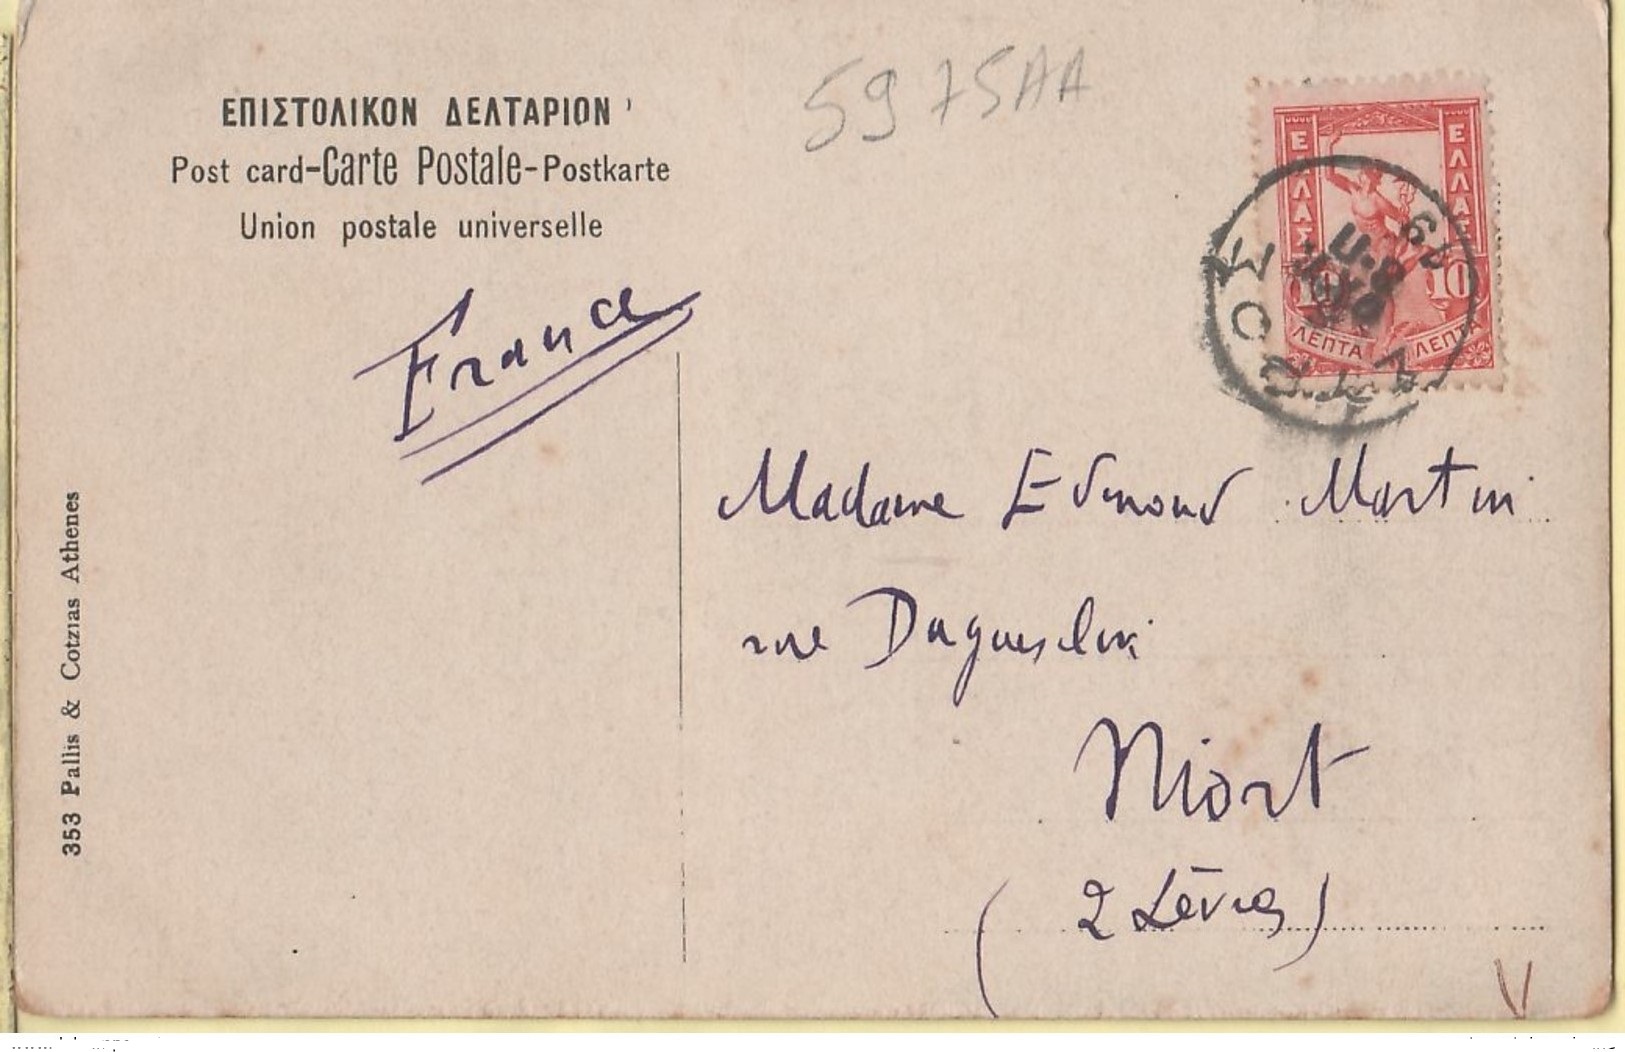 ΕΠΙΣΤΟΛΙΚΟΝ ΔΕΛΤΑΡΙΟΝ
Post card-Carte Postale-Postkarte
Union postale universelle
5975AA
ΕΛΛΑΣ
ΕΛΛΑΣ
10
10
ΛΕΠΤΑ
ΛΕΠΤΑ
France
Madame Edmond Martin
rue Duguesclin
Niort
(2 Sèvres)
353 Pallis & Cotzias Athenes